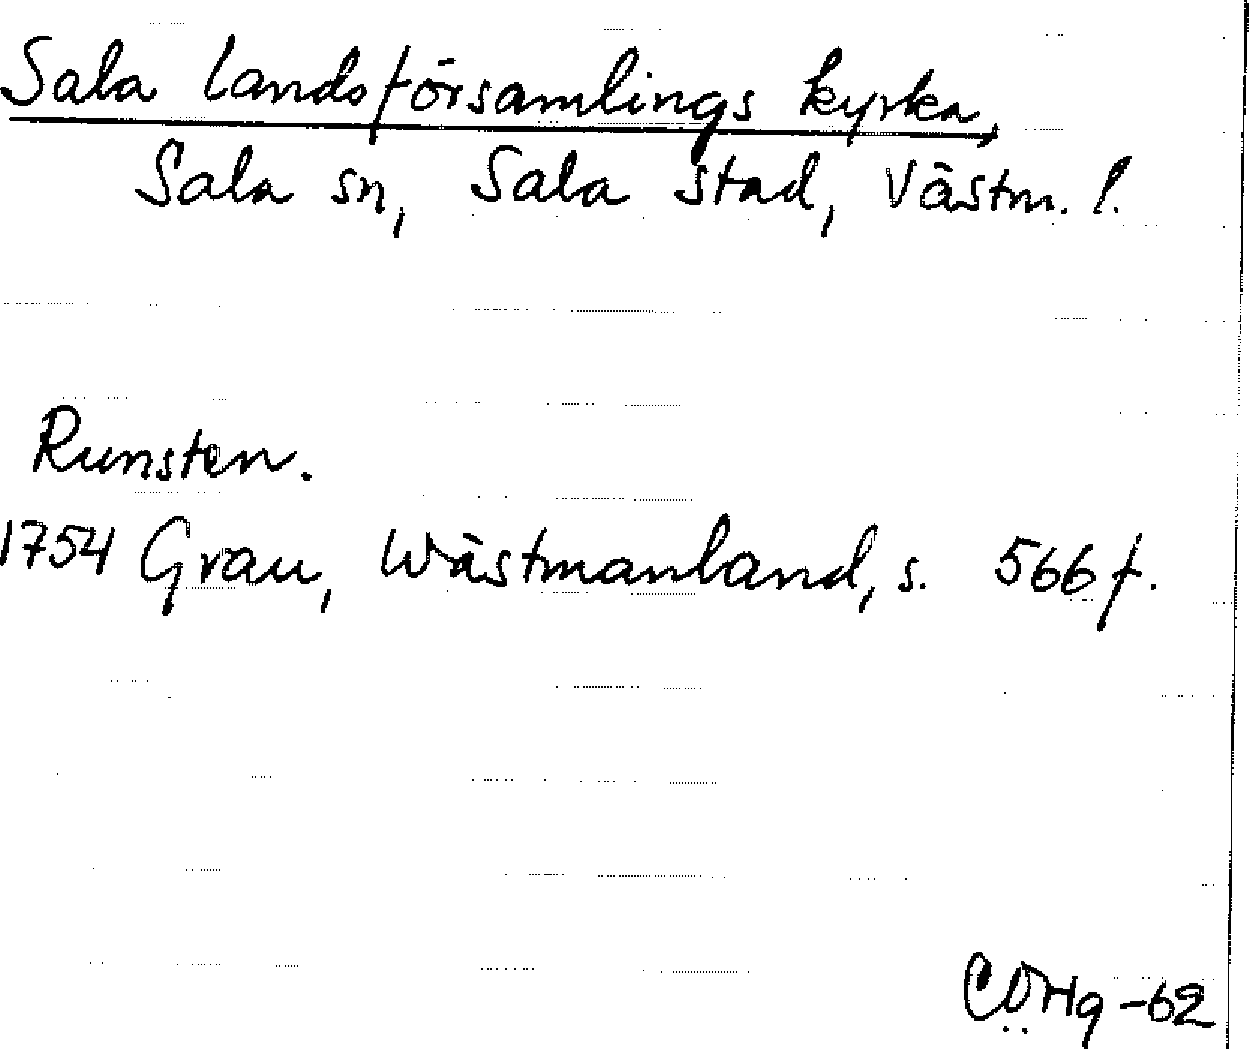 Sala landsförsamlings kyrka,
Sala sn, Sala stad, Västm. l.
Runsten.
1754 Grau, Wästmanland, s. 566 f.
-62